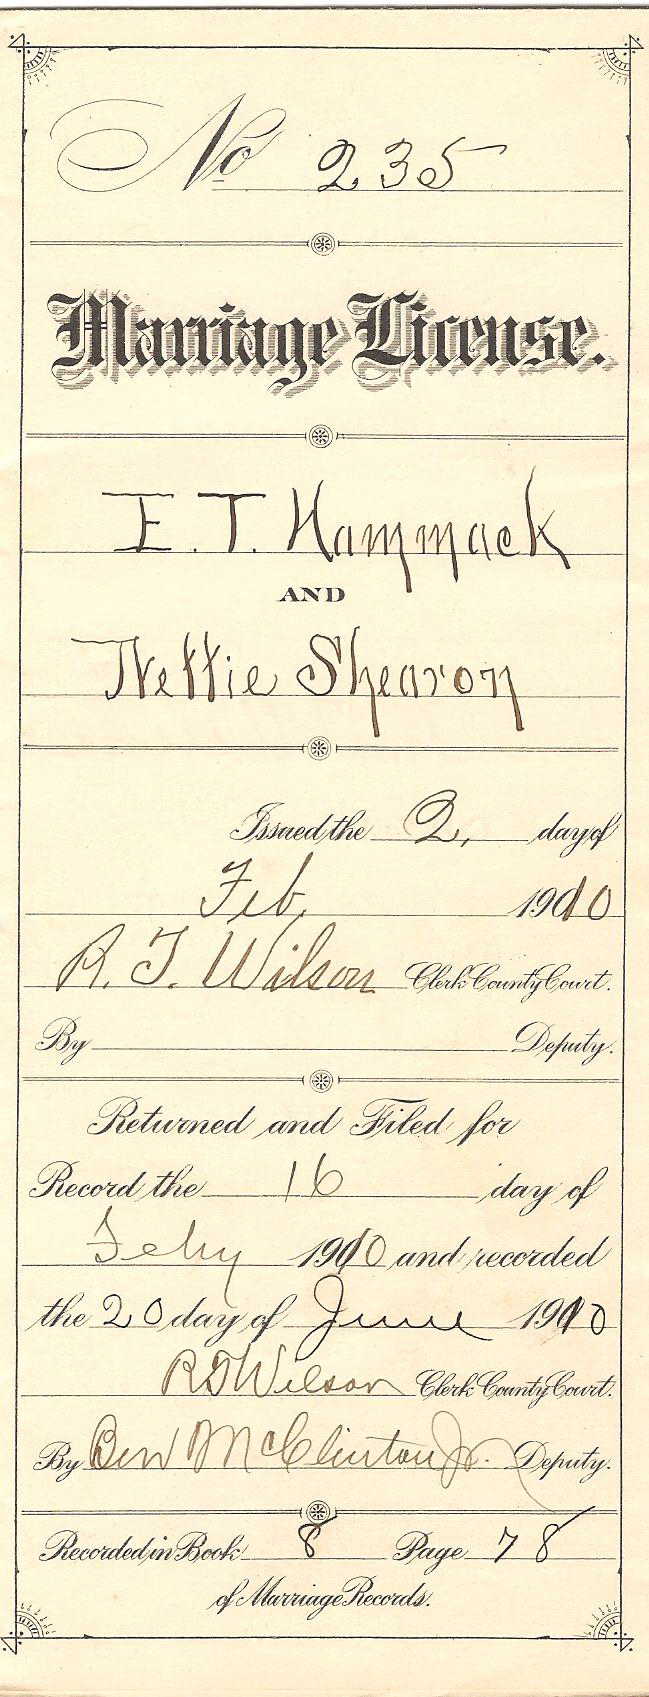 No 235
Marriage License.
E. T. Hammack
AND
Nettie Shearon
Issued the 2, day of
Feb, 1910
R. T. Wilson Clerk County Court.
By Deputy.
Returned and Filed for
Record the 16 day of
Feby 1910 and recorded
the 20 day of June 1910
R T Wilson Clerk County Court.
By Ben McClinton Jr. Deputy.
Recorded in Book 8 Page 78
of Marriage Records.